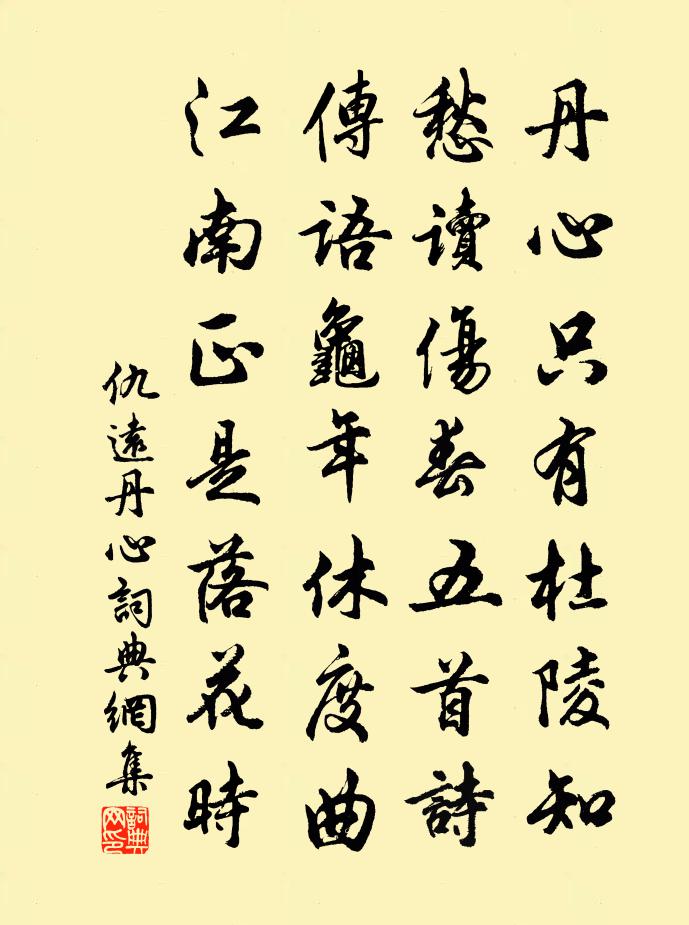 丹心只有杜陵知
愁讀傷春五首詩
傳語龜年休度曲
江南正是落花時
仇遠丹心詞典網集
詞典網印